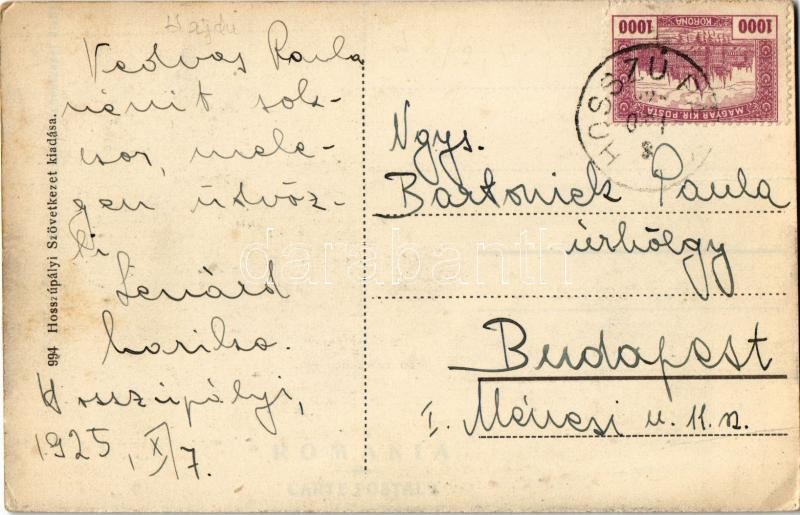 Hajdu
Kedves Paula
nénit sok-
szor, mele-
gen üdvöz-
li
Lenárd
Mariska.
Hosszúpályi,
1925. X/7.
994 Hosszúpályi Szövetkezet kiadása.
1000 KORONA 1000
MAGYAR KIR. POSTA
HOSSZÚP
Ngys.
Bartoniek Paula
úrhölgy
Budapest
I. Ménesi u. 11. sz.
darabanth
ROMANIA
CARTE POSTALA